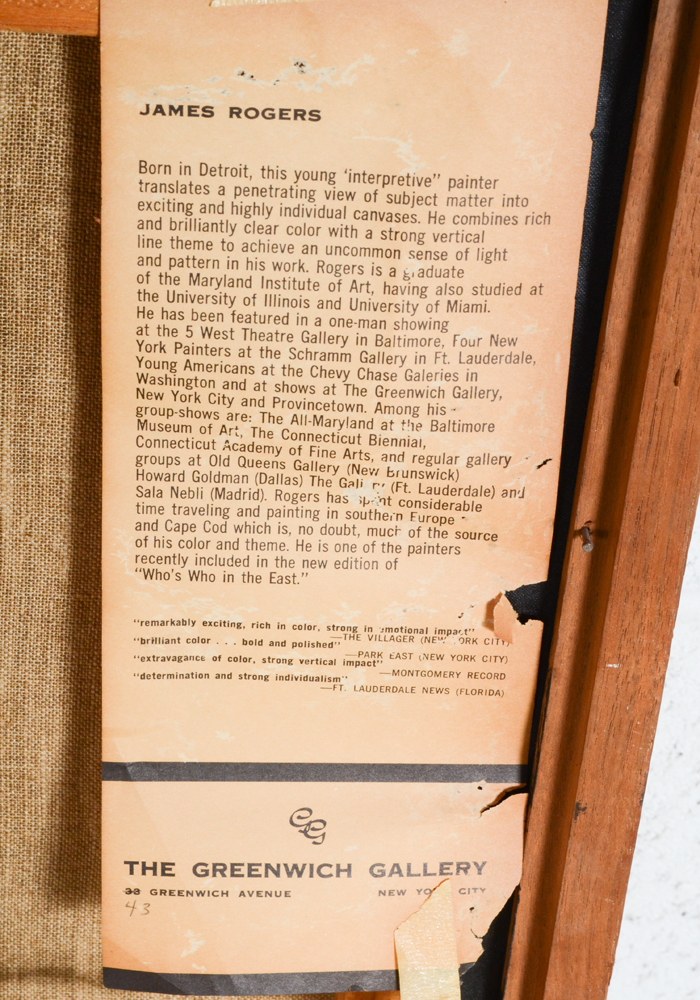 JAMES ROGERS
Born in Detroit, this young ‘interpretive” painter
translates a penetrating view of subject matter into
exciting and highly individual canvases. He combines rich
and brilliantly clear color with a strong vertical
line theme to achieve an uncommon sense of light
and pattern in his work. Rogers is a graduate
of the Maryland Institute of Art, having also studied at
the University of Illinois and University of Miami.
He has been featured in a one-man showing
at the 5 West Theatre Gallery in Baltimore, Four New
York Painters at the Schramm Gallery in Ft. Lauderdale,
Young Americans at the Chevy Chase Galeries in
Washington and at shows at The Greenwich Gallery,
New York City and Provincetown. Among his
group-shows are: The All-Maryland at the Baltimore
Museum of Art, The Connecticut Biennial,
Connecticut Academy of Fine Arts, and regular gallery
groups at Old Queens Gallery (New Brunswick)
Howard Goldman (Dallas) The Gallery (Ft. Lauderdale) and
Sala Nebli (Madrid). Rogers has spent considerable
time traveling and painting in southern Europe
and Cape Cod which is, no doubt, much of the source
of his color and theme. He is one of the painters
recently included in the new edition of
“Who's Who in the East.”
“remarkably exciting, rich in color, strong in emotional impact”
—THE VILLAGER (NEW YORK CITY)
“brilliant color . . . bold and polished”
—PARK EAST (NEW YORK CITY)
“extravagance of color, strong vertical impact”
—MONTGOMERY RECORD
“determination and strong individualism”
—FT. LAUDERDALE NEWS (FLORIDA)
GG
THE GREENWICH GALLERY
38 GREENWICH AVENUE NEW YORK CITY
43